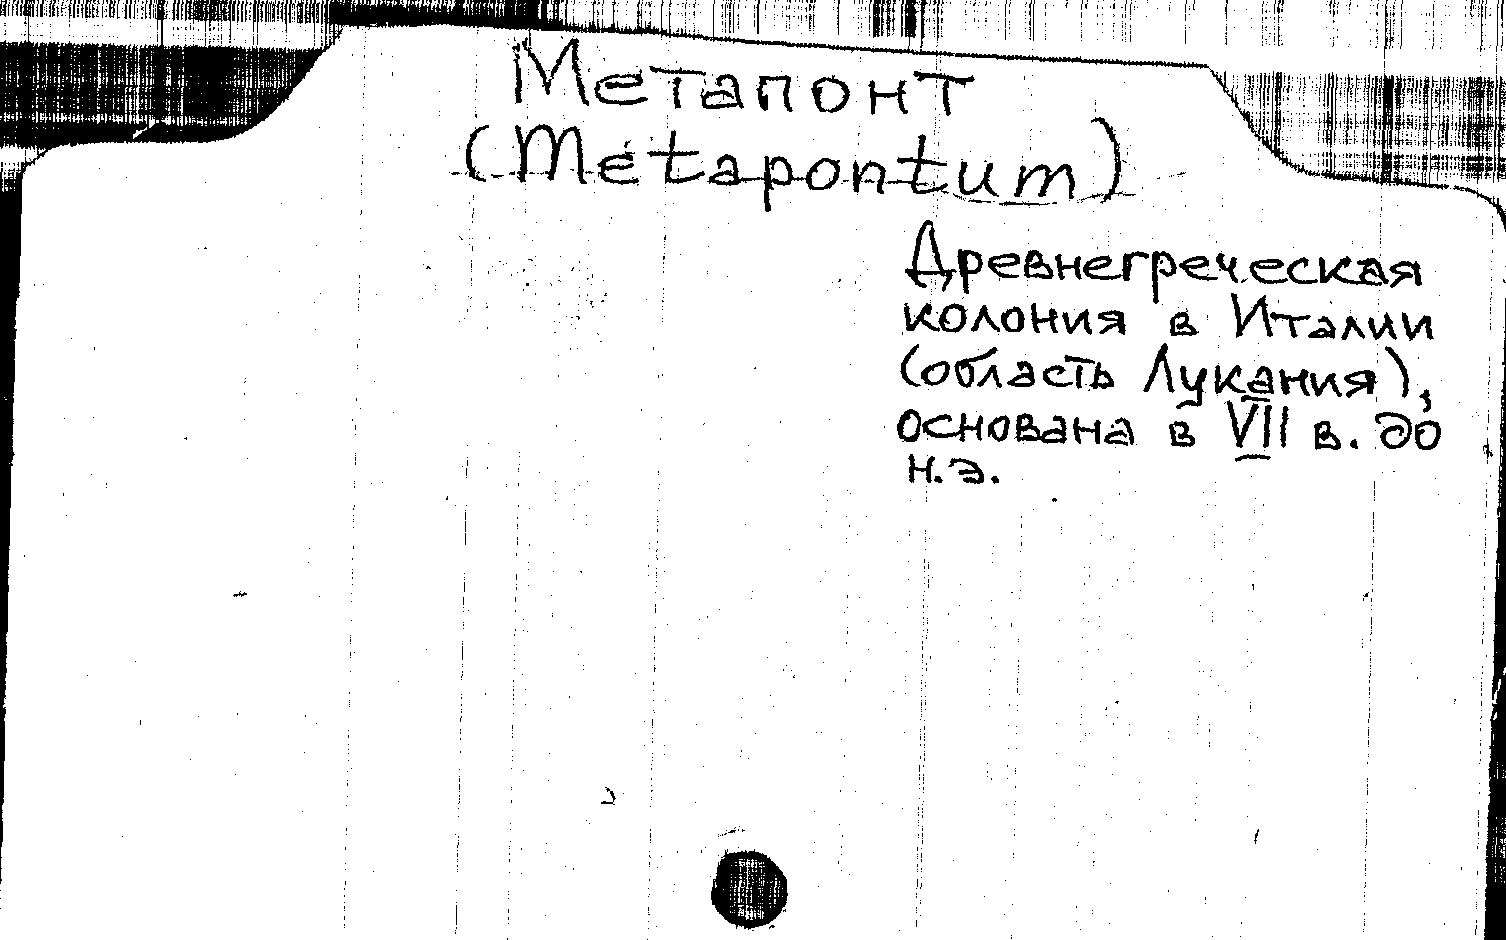 Метапонт
(Metapontum)
Древнегреческая
колония в Италии
(область Лукания),
основана в VII в. до
н.э.